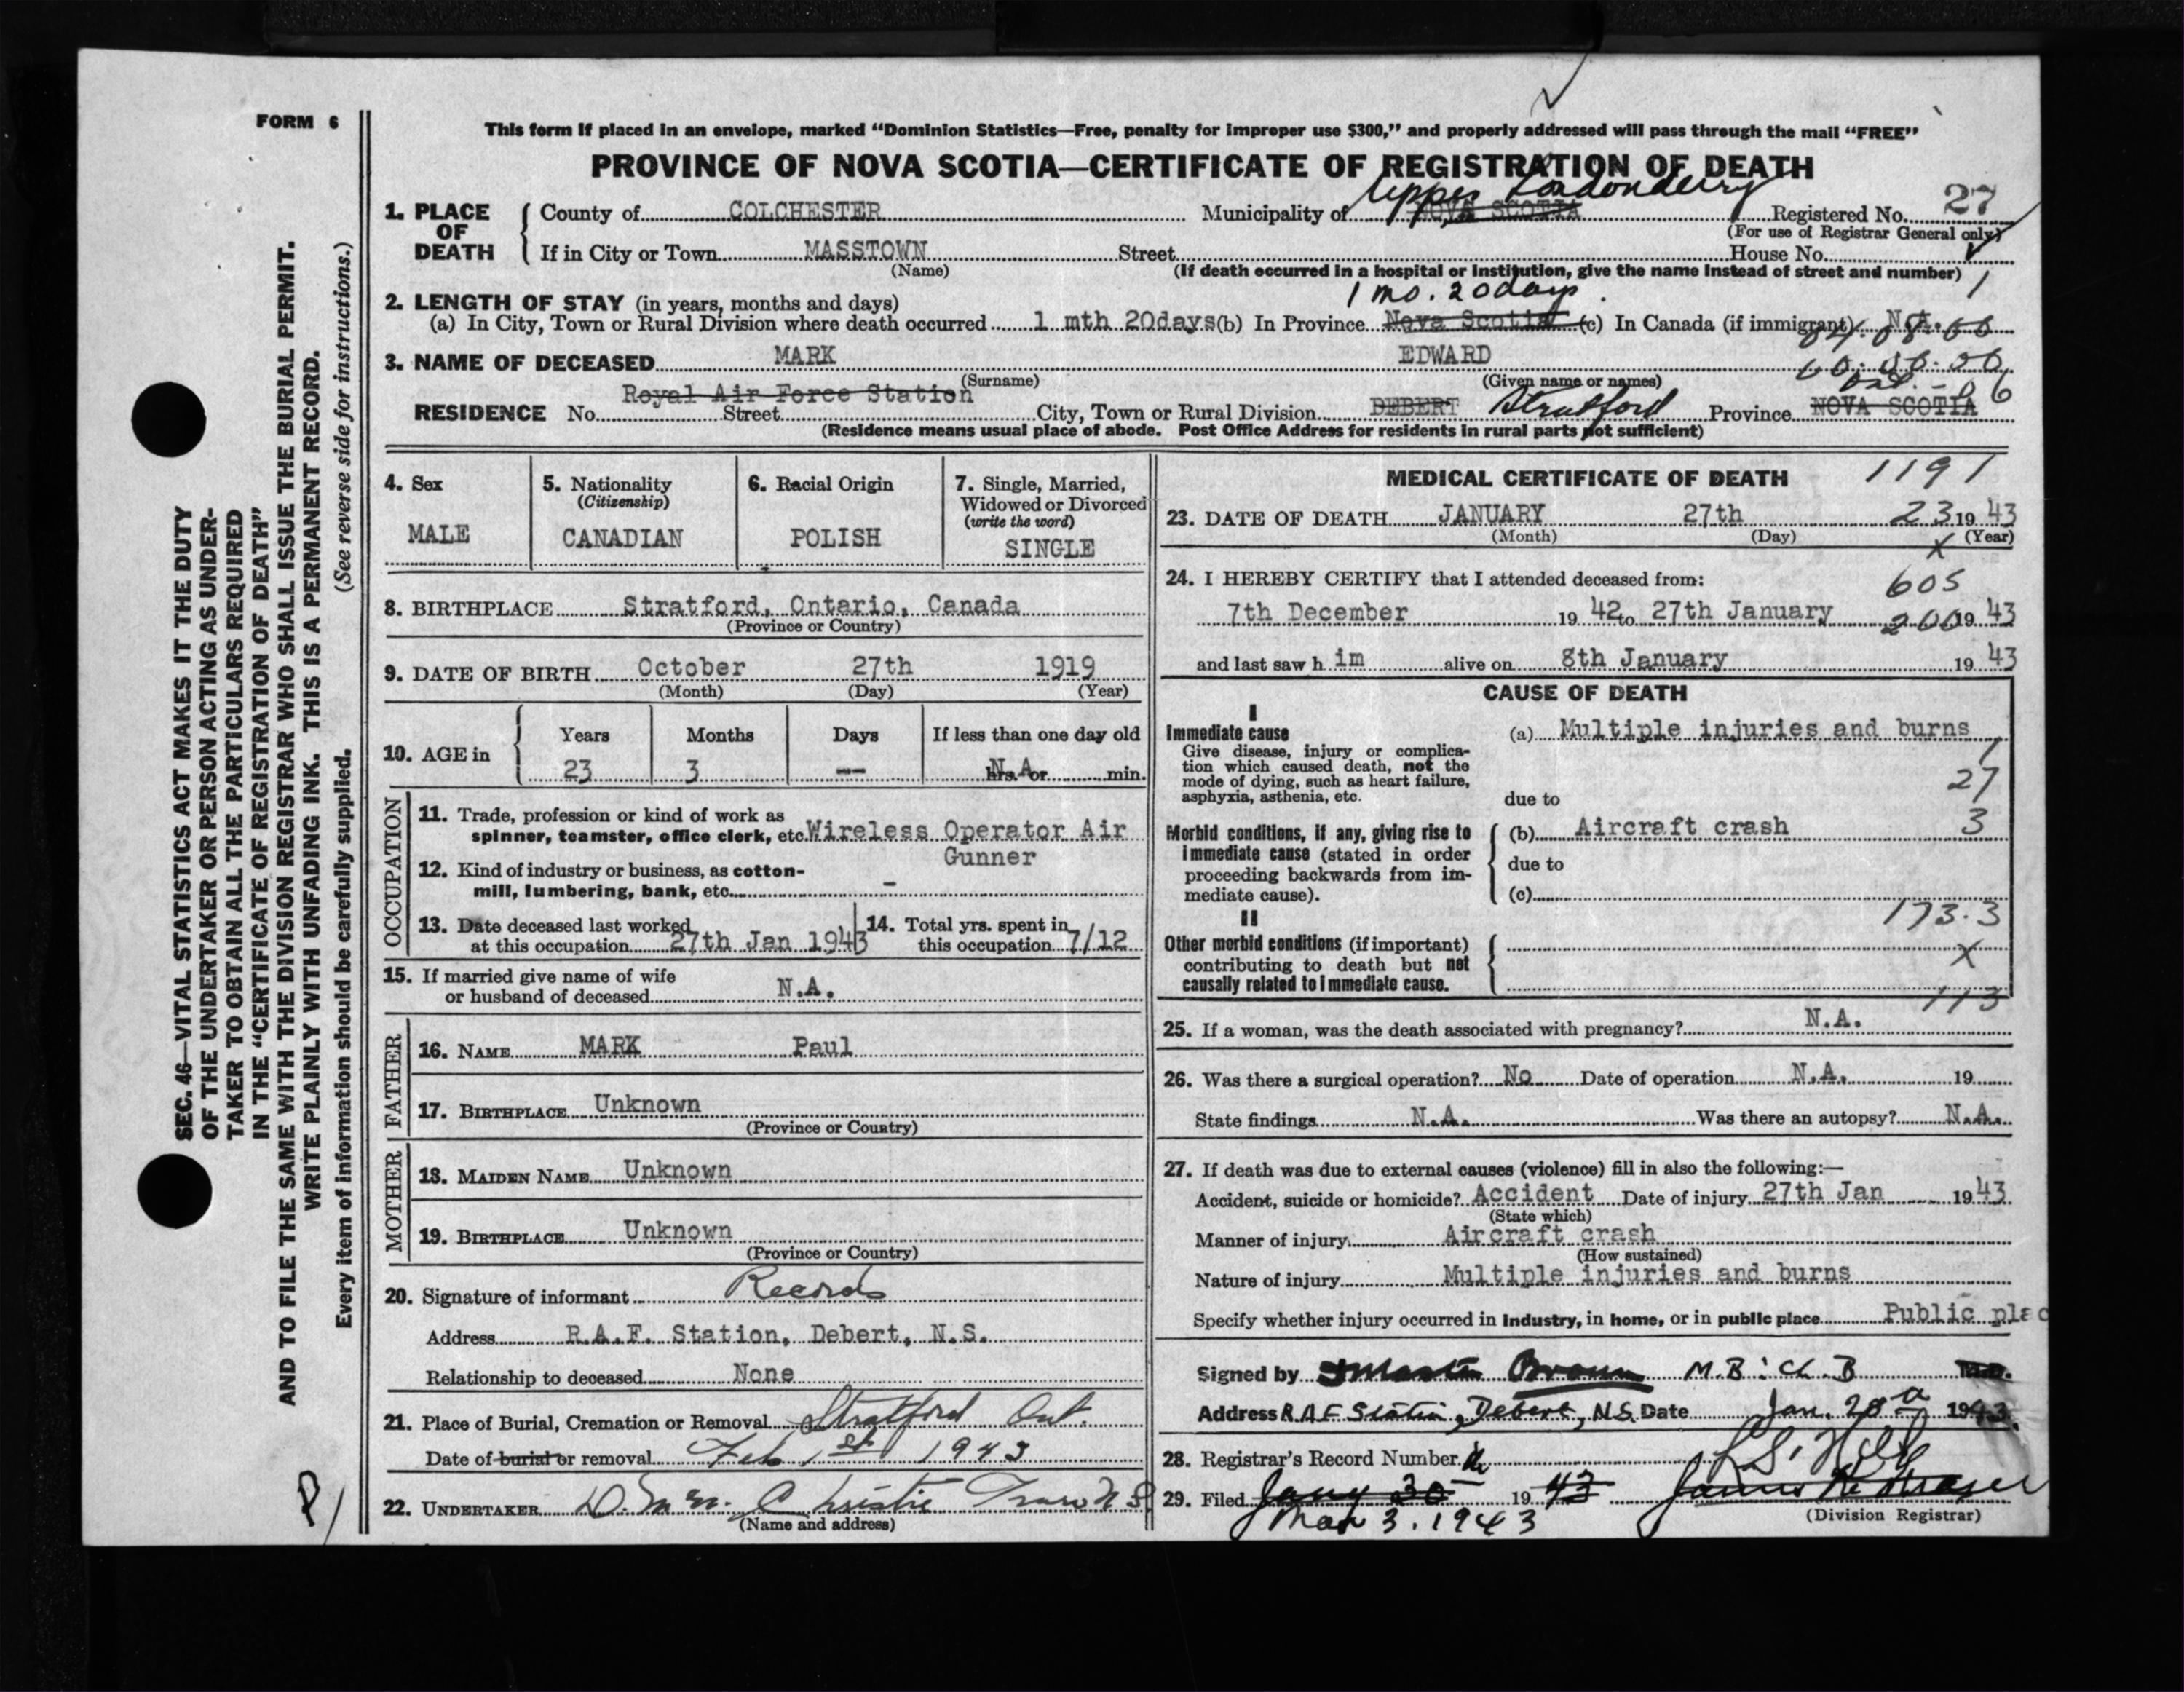 FORM 6
This form if placed in an envelope, marked "Dominion Statistics—Free, penalty for improper use $300," and properly addressed will pass through the mail "FREE"
PROVINCE OF NOVA SCOTIA—CERTIFICATE OF REGISTRATION OF DEATH
Upper Londonderry
1. PLACE OF DEATH { County of COLCHESTER Municipality of NOVA SCOTIA Registered No. 27
(For use of Registrar General only)
If in City or Town MASSTOWN Street House No.
(Name) (If death occurred in a hospital or institution, give the name instead of street and number) 1
2. LENGTH OF STAY (in years, months and days) 1 mo. 20 days.
(a) In City, Town or Rural Division where death occurred 1 mth 20days (b) In Province Nova Scotia (c) In Canada (if immigrant) N.A.
3. NAME OF DECEASED MARK EDWARD
(Surname) (Given name or names)
Royal Air Force Station
RESIDENCE No. Street City, Town or Rural Division DEBERT Stratford Province NOVA SCOTIA Ont. - 06
(Residence means usual place of abode. Post Office Address for residents in rural parts not sufficient)
4. Sex
MALE
5. Nationality
(Citizenship)
CANADIAN
6. Racial Origin
POLISH
7. Single, Married,
Widowed or Divorced
(write the word)
SINGLE
8. BIRTHPLACE Stratford, Ontario, Canada
(Province or Country)
9. DATE OF BIRTH October 27th 1919
(Month) (Day) (Year)
10. AGE in { Years Months Days If less than one day old
23 3 -- N.A. hrs. or min.
OCCUPATION
11. Trade, profession or kind of work as
spinner, teamster, office clerk, etc. Wireless Operator Air
Gunner
12. Kind of industry or business, as cotton-
mill, lumbering, bank, etc. -
13. Date deceased last worked
at this occupation 27th Jan 1943
14. Total yrs. spent in
this occupation 7/12
15. If married give name of wife
or husband of deceased N.A.
FATHER
16. NAME MARK Paul
17. BIRTHPLACE Unknown
(Province or Country)
MOTHER
18. MAIDEN NAME Unknown
19. BIRTHPLACE Unknown
(Province or Country)
20. Signature of informant Records
Address R.A.F. Station, Debert, N.S.
Relationship to deceased None
21. Place of Burial, Cremation or Removal Stratford Ont.
Date of burial or removal Feb 1st 1943
22. UNDERTAKER Christie Truro N S
(Name and address)
MEDICAL CERTIFICATE OF DEATH 1191
23. DATE OF DEATH JANUARY 27th 23 1943
(Month) (Day) (Year)
X
24. I HEREBY CERTIFY that I attended deceased from: 605
7th December 19 42 to 27th January 200 19 43
and last saw him alive on 8th January 19 43
CAUSE OF DEATH
I
Immediate cause
Give disease, injury or complica-
tion which caused death, not the
mode of dying, such as heart failure,
asphyxia, asthenia, etc.
(a) Multiple injuries and burns
1
27
due to
Morbid conditions, if any, giving rise to
immediate cause (stated in order
proceeding backwards from im-
mediate cause).
(b) Aircraft crash 3
due to
(c)
173.3
II
Other morbid conditions (if important)
contributing to death but not
causally related to immediate cause.
X
113
25. If a woman, was the death associated with pregnancy? N.A.
26. Was there a surgical operation? No Date of operation N.A. 19
State findings N.A. Was there an autopsy? N.A.
27. If death was due to external causes (violence) fill in also the following:—
Accident, suicide or homicide? Accident Date of injury 27th Jan 1943
(State which)
Manner of injury Aircraft crash
(How sustained)
Nature of injury Multiple injuries and burns
Specify whether injury occurred in industry, in home, or in public place Public plac
Signed by M.B: Ch.B M.D.
Address R A F Station, Debert, N.S. Date Jan. 1943.
28. Registrar's Record Number
29. Filed Jany 30 19 43
Mar 3. 1943 (Division Registrar)
SEC. 46—VITAL STATISTICS ACT MAKES IT THE DUTY
OF THE UNDERTAKER OR PERSON ACTING AS UNDER-
TAKER TO OBTAIN ALL THE PARTICULARS REQUIRED
IN THE "CERTIFICATE OF REGISTRATION OF DEATH"
AND TO FILE THE SAME WITH THE DIVISION REGISTRAR WHO SHALL ISSUE THE BURIAL PERMIT.
WRITE PLAINLY WITH UNFADING INK. THIS IS A PERMANENT RECORD.
Every item of information should be carefully supplied. (See reverse side for instructions.)